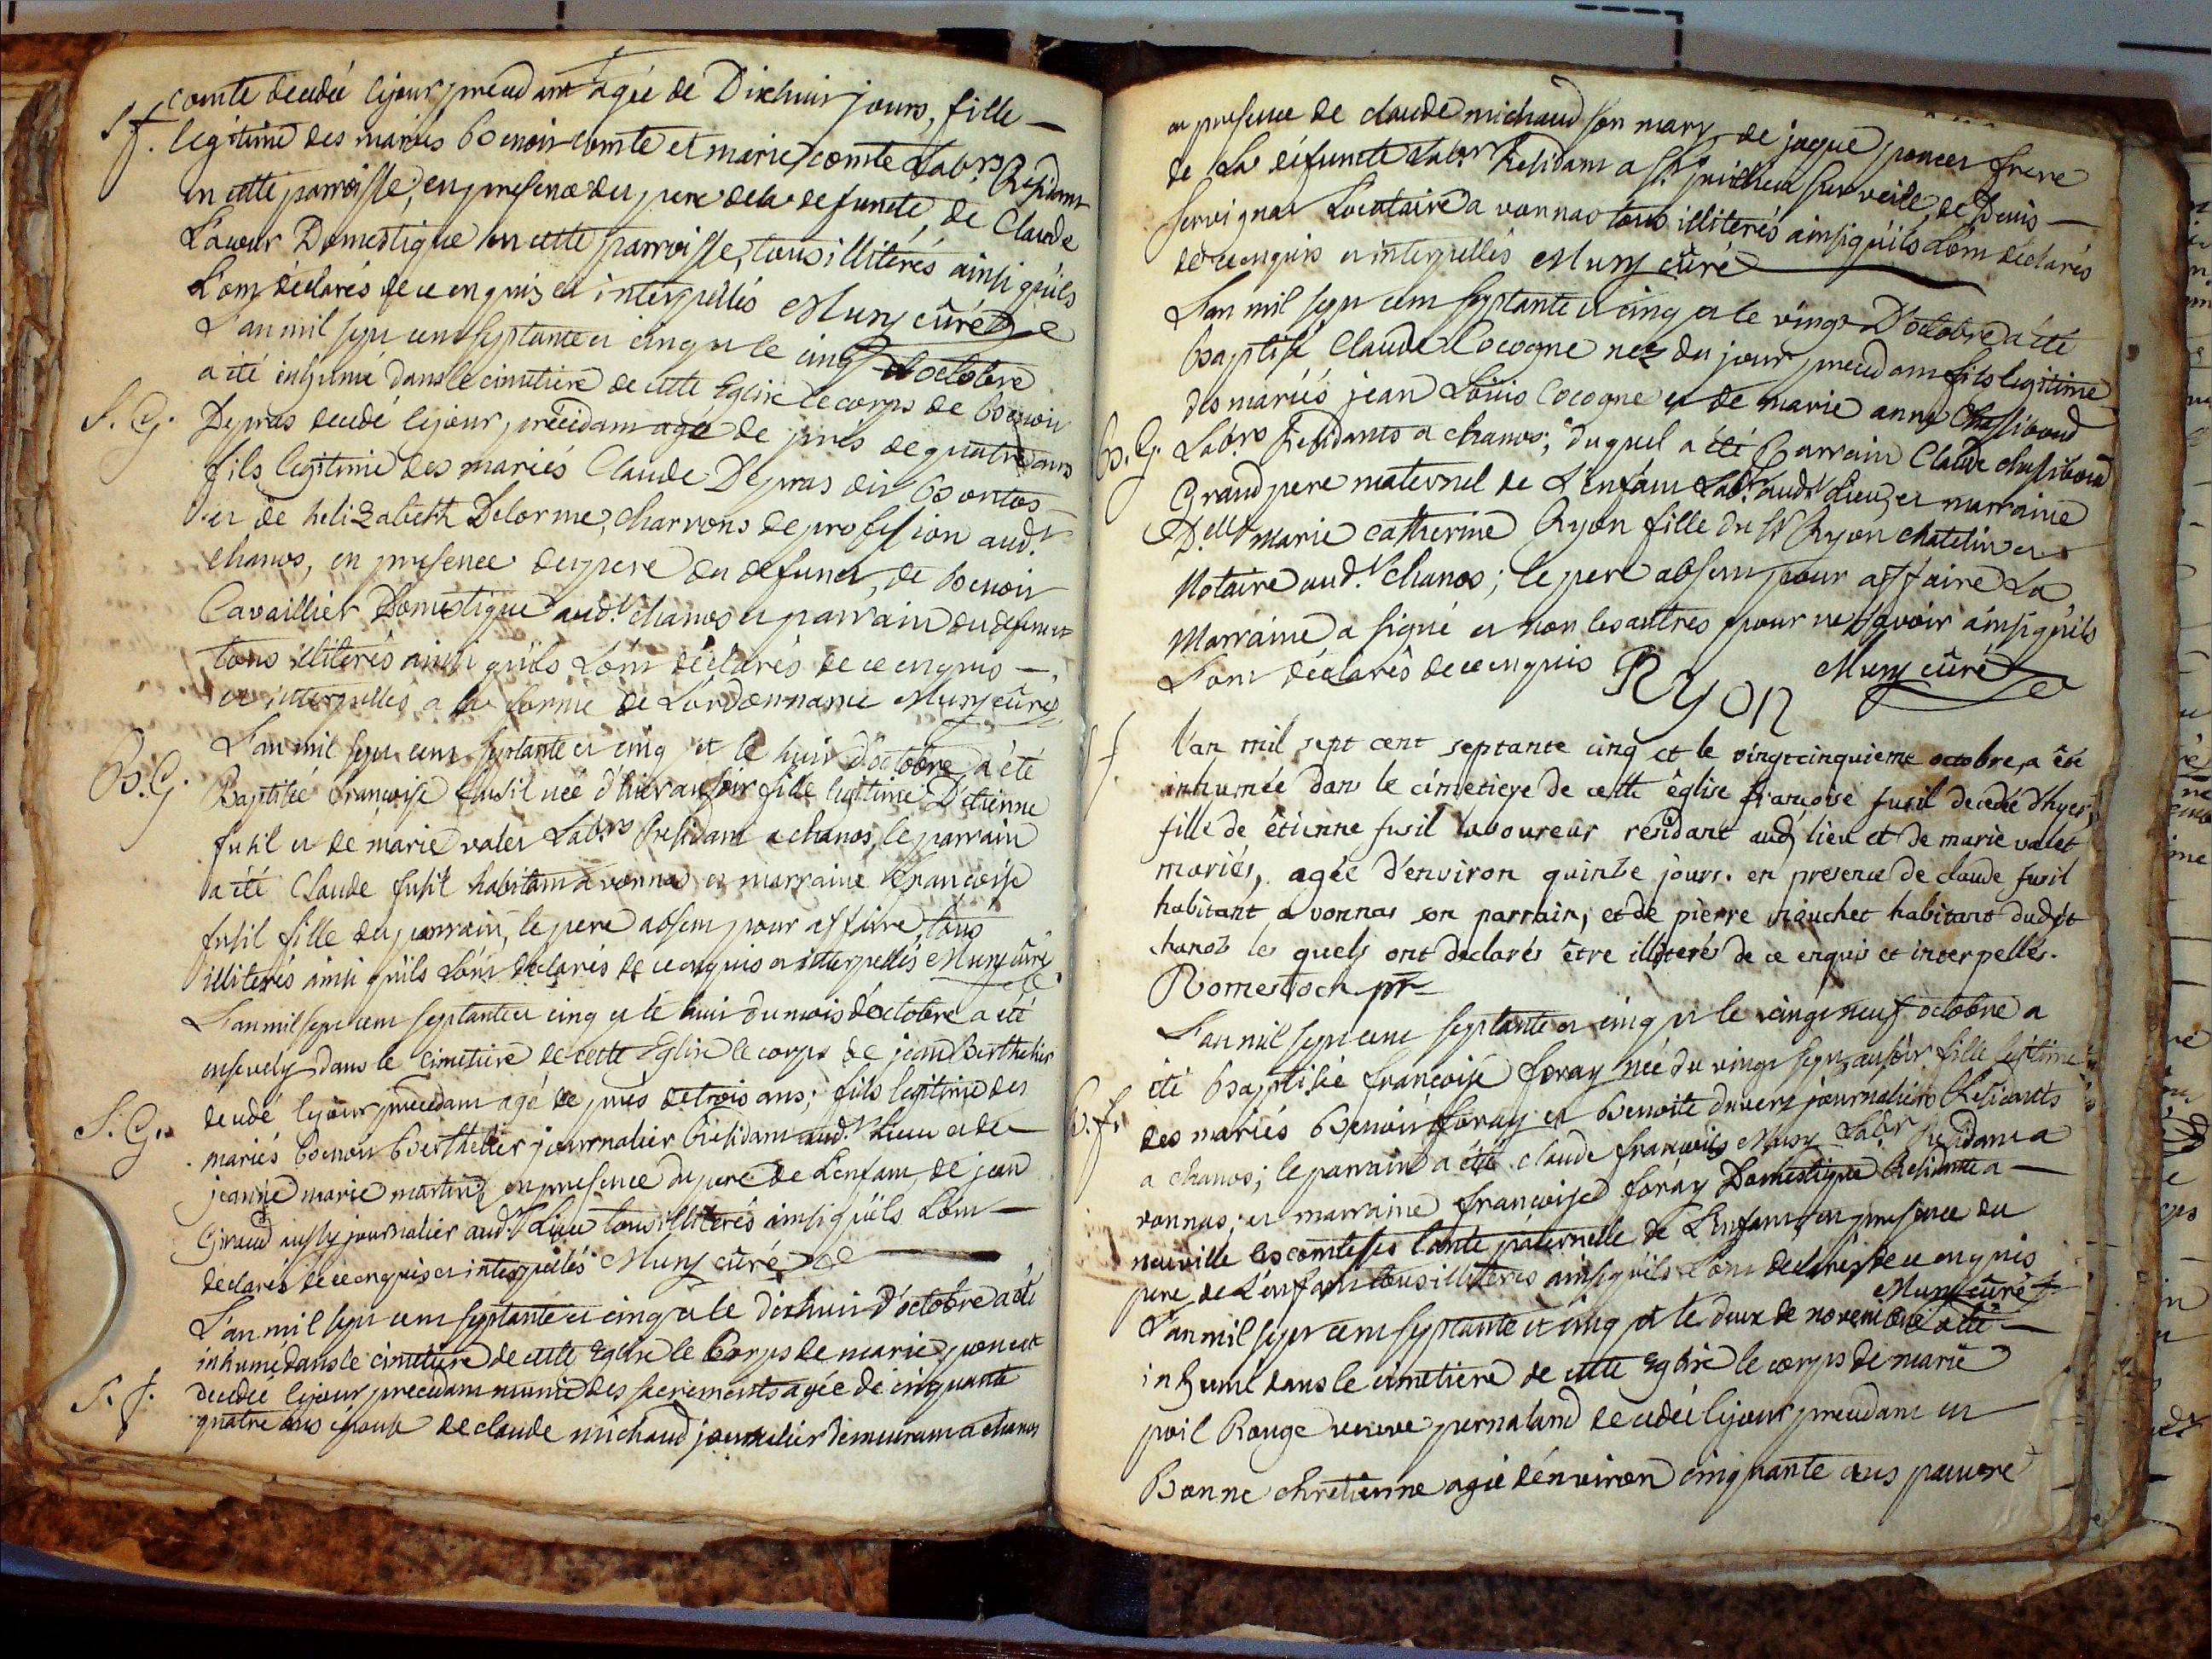 comte decedeé lejour precedant agée de Dixhuit jours, fille —
S f. legitime des mariés Benoit comte et marie comte Lab.rs Residants
en cette parroisse, en presence du pere de la defuncte, de Claude
Domestique en cette parroisse, tous illitérés ainsi qu'ils
L'ont déclarés de ce enquis et interpellés Muny curé
L'an mil sept cent septante et cinq et le cinq d'octobre
a été inhumé dans le cimetiere de cette Eglise le corps de Benoit
S. G. Depras decedé lejour précédant agé de prés de quatre ans
fils legitime des mariés Claude Depras dit
et de helizabeth Delorme, charrons de profession aud.t
chanos, en presence du pere du defunct, de Benoit
Cavaillier Domestique aud.t chanos et parrain du defunct
tous illiterés ainsi qu'ils L'ont déclarés de ce enquis —
et interpellés a la forme de L'ordonnance Muny curé
L'an mil sept cent septante et cinq et le huit d'octobre a été
B. G. Baptisée francoise fusil née d'hier au soir fille legitime D'etienne
fusil et de marie valet Lab.rs Residant a chanos, le parrain
a été Claude fusil habitant a vonnas et marraine francoise
fusil fille du parrain, le pere absent pour affaire tous
illiterés ainsi qu'ils L'ont declarés de ce enquis et interpellés Muny curé
L'an mil sept cent septante et cinq et le huit du mois d'octobre a été
ensevely dans le cimetiere de cette Eglise le corps de jean Berthelier
decedé lejour precedant agé de prés de trois ans, fils legitime des
S. G. mariés Benoit Berthelier journalier Residant aud.t Lieu et de
jeanne marie martin, en presence du pere de L'enfant, de jean
Giraud aussy journalier aud.t Lieu tous illiterés ainsi qu'ils L'ont —
déclarés de ce enquis et interpellés Muny curé
L'an mil sept cent septante et cinq et le dixhuit d'octobre a été
inhumé dans le cimetiere de cette Eglise le Corps de marie poncet
S. f. decedeé lejour precedant munie des sacrements agée de cinquante
quatre ans epouse de claude michaud journalier demeurant a chanos
en presence de claude michaud son mary de jaque poncet frere
de La défuncte Lab.r Residant a S.t veile, de Denis —
Servignat Locataire a vonnas tous illiterés ainsi qu'ils L'ont déclarés
de ce enquis et interpellés Muny curé
L'an mil sept cent septante et cinq et le vingt D'octobre a été
Baptisé Claude Cocogne nez du jour precedant fils legitime
des mariés jean Loüis Cocogne et de marie anne Chassiboud
B. G. Lab.rs Residants a chanos, duquel a été Parrain Claude chassiboud
Grand pere maternel de L'enfant Lab.r aud.t Lieu, et marraine
D.elle marie catherine Ryon fille du S.r Ryon chatelin et
Notaire aud.t chanos; le pere absent pour affaire La
Marraine a signé et non les autres pour ne sçavoir ainsi qu'ils
L'ont déclarés de ce enquis Ryon Muny curé
S f l'an mil sept cent septante cinq et le vingtcinquieme octobre, a été
inhumée dans le cimetiere de cette église françoise fusil decedée d'hyer,
fille de étienne fusil laboureur residant aud. lieu et de marie valet
mariés, agée d'environ quinse jours. en presence de claude fusil
habitant a vonnas son parrain, et de pierre habitant dudit
chanos les quels ont declarés être illiterés de ce enquis et interpellés.
Romestoch ptr
L'an mil sept cent septante et cinq et le vingt neuf octobre a
été Baptisée françoise foray née du vingt sept au soir fille legitime
B. f. des mariés Benoit foray et Benoite duvert journaliers Residants
a chanos; le parrain a été claude françois Muny Lab.r Residant a
vonnas, et marraine françoise foray Domestique Residante a —
neuville les comtesses tante paternelle de L'enfant, en presence du
pere de L'enfant tous illiterés ainsi qu'ils L'ont declarés de ce enquis
Muny curé
L'an mil sept cent septante et cinq et le deux de novembre a été —
inhumé dans le cimetiere de cette Eglise le corps de marie
poil Rouge veuve pernaland decedeé lejour precedant en
Bonne chretienne agée d'énviron cinquante ans pauvre